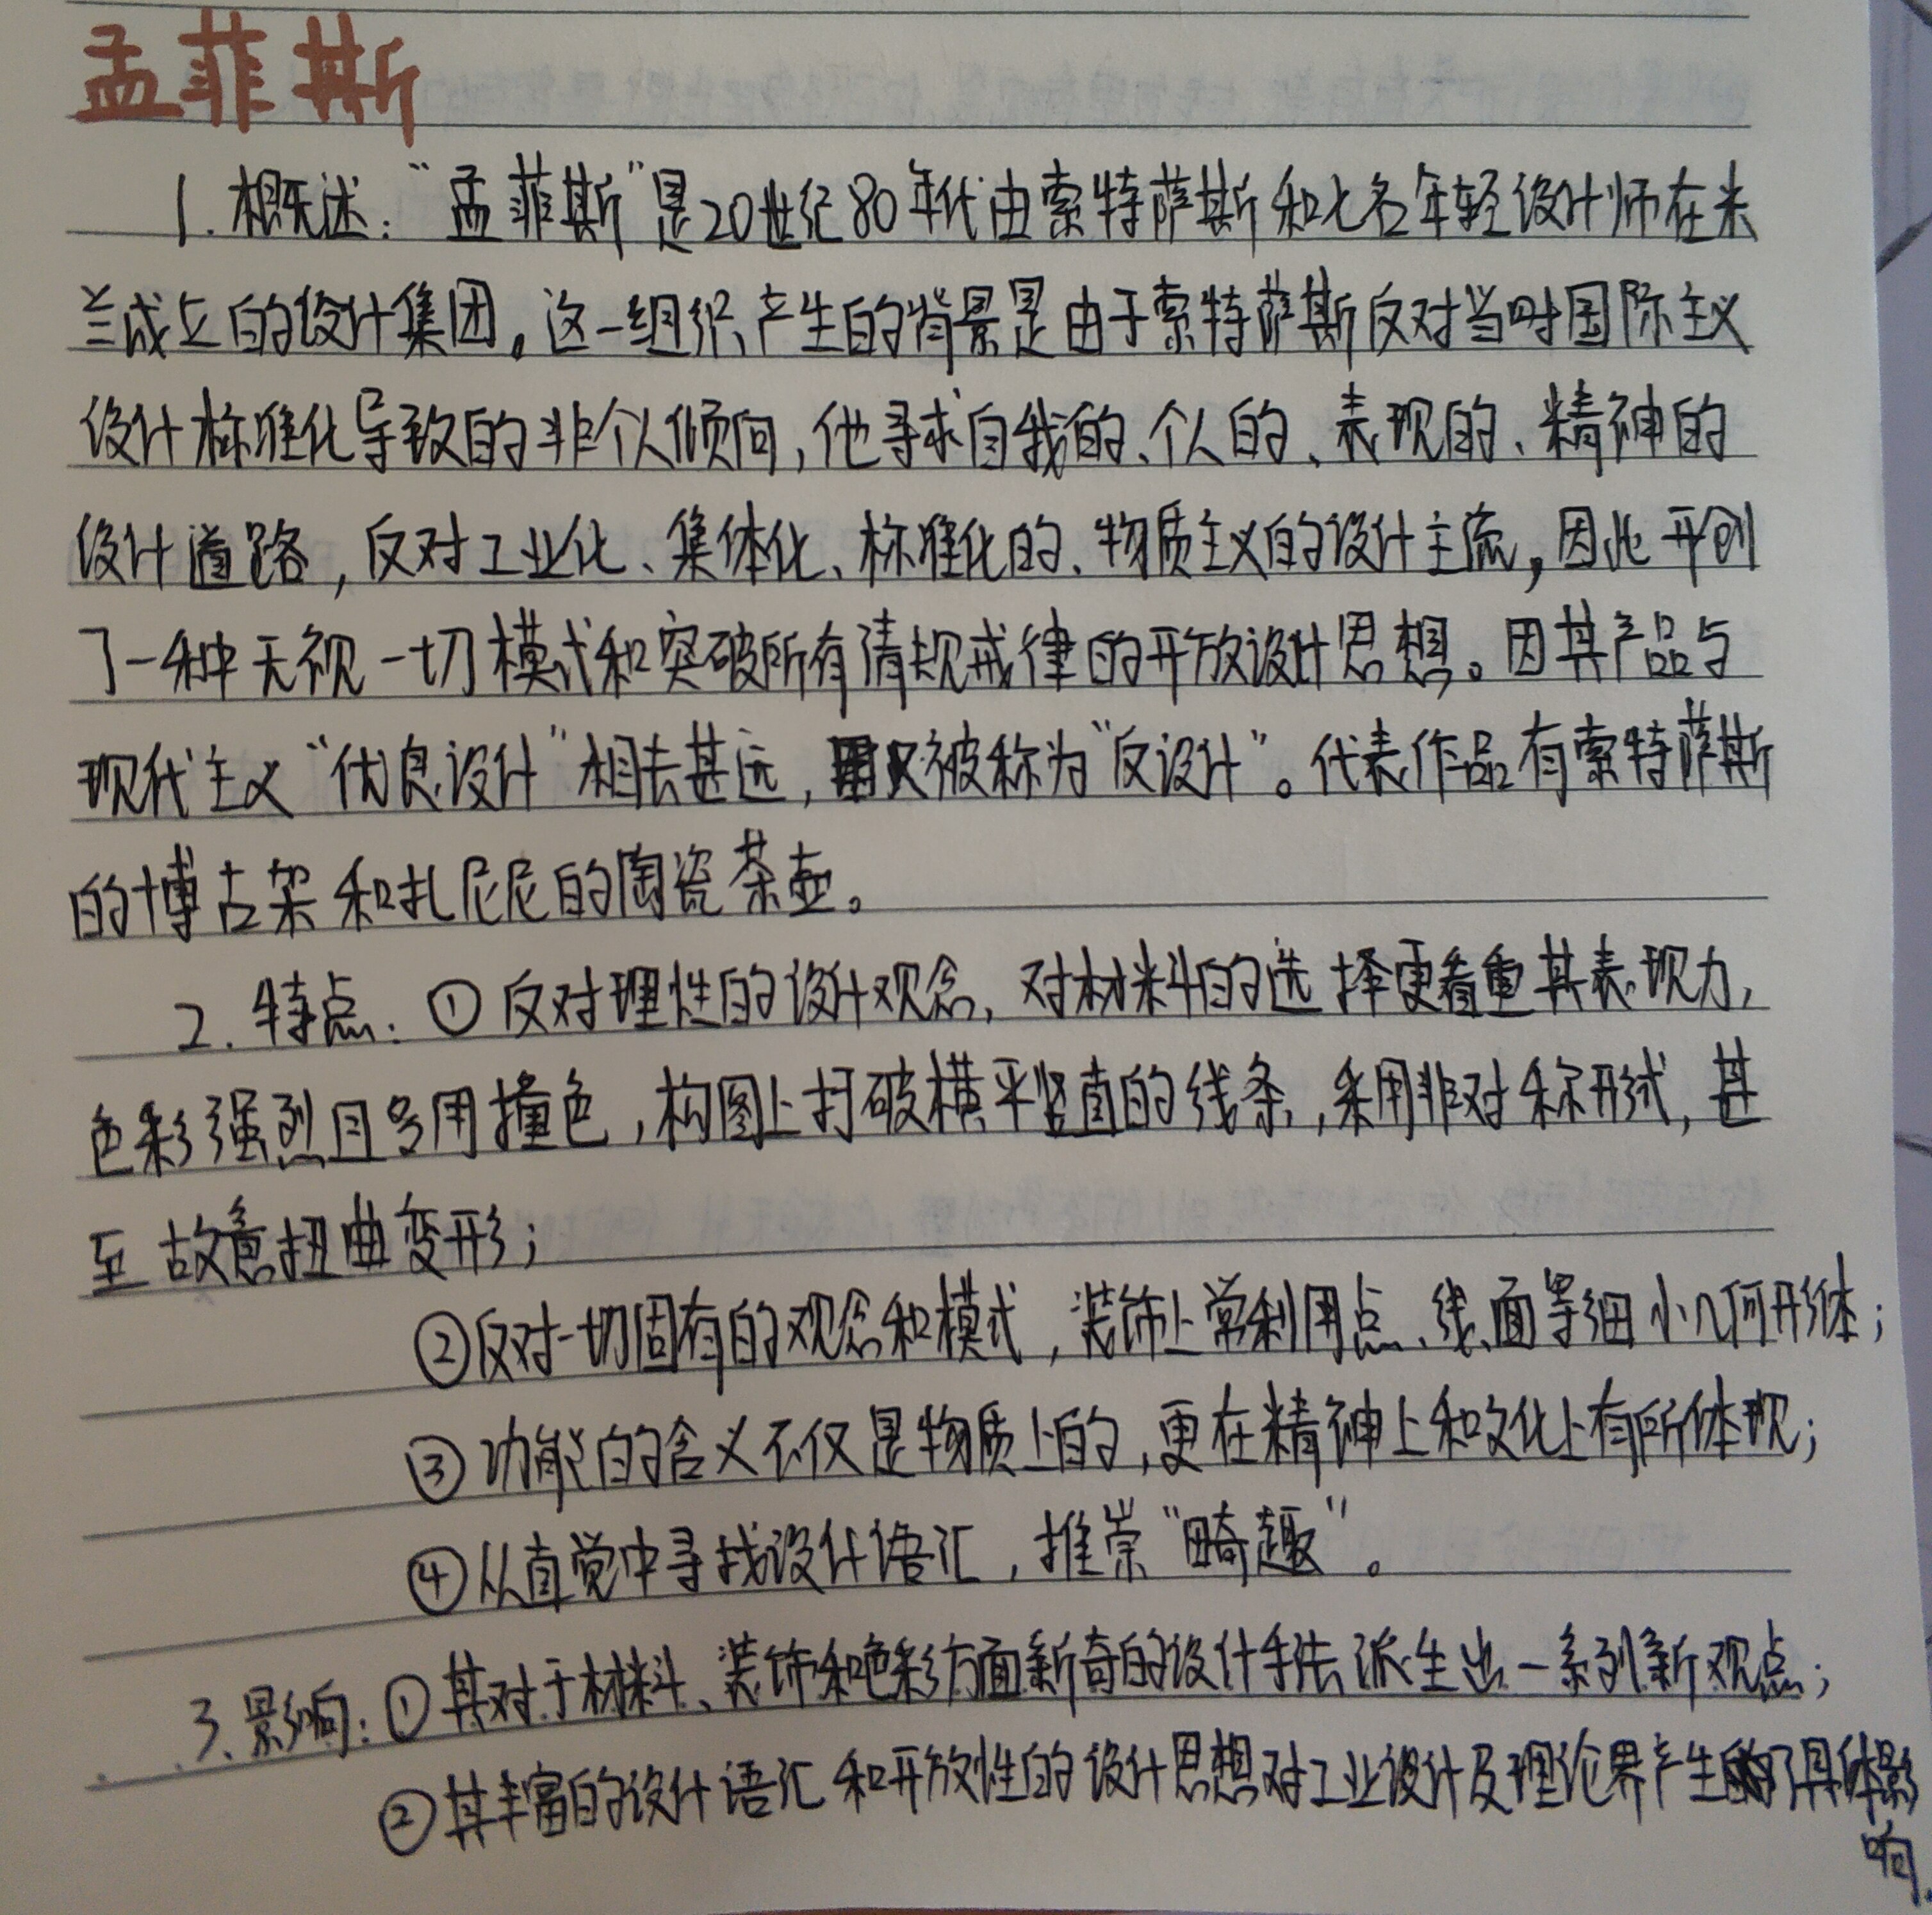 孟菲斯
1. 概述：“孟菲斯”是20世纪80年代由索特萨斯和七名年轻设计师在米
兰成立的设计集团。这一组织产生的背景是由于索特萨斯反对当时国际主义
设计标准化导致的非个人倾向，他寻求自我的、个人的、表现的、精神的
设计道路，反对工业化、集体化、标准化的、物质主义的设计主流，因此开创
了一种无视一切模式和突破所有清规戒律的开放设计思想。因其产品与
现代主义“优良设计”相去甚远，又被称为“反设计”。代表作品有索特萨斯
的博古架和扎尼尼的陶瓷茶壶。
2. 特点：①反对理性的设计观念，对材料的选择更看重其表现力，
色彩强烈且多用撞色，构图上打破横平竖直的线条，采用非对称形式，甚
至故意扭曲变形；
②反对一切固有的观念和模式，装饰上常利用点、线、面等细小几何形体；
③功能的含义不仅是物质上的，更在精神上和文化上有所体现；
④从直觉中寻找设计语汇，推崇“畸趣”。
3. 影响：①其对于材料、装饰和色彩方面新奇的设计手法派生出一系列新观点；
②其丰富的设计语汇和开放性的设计思想对工业设计及理论界产生了具体影
响.